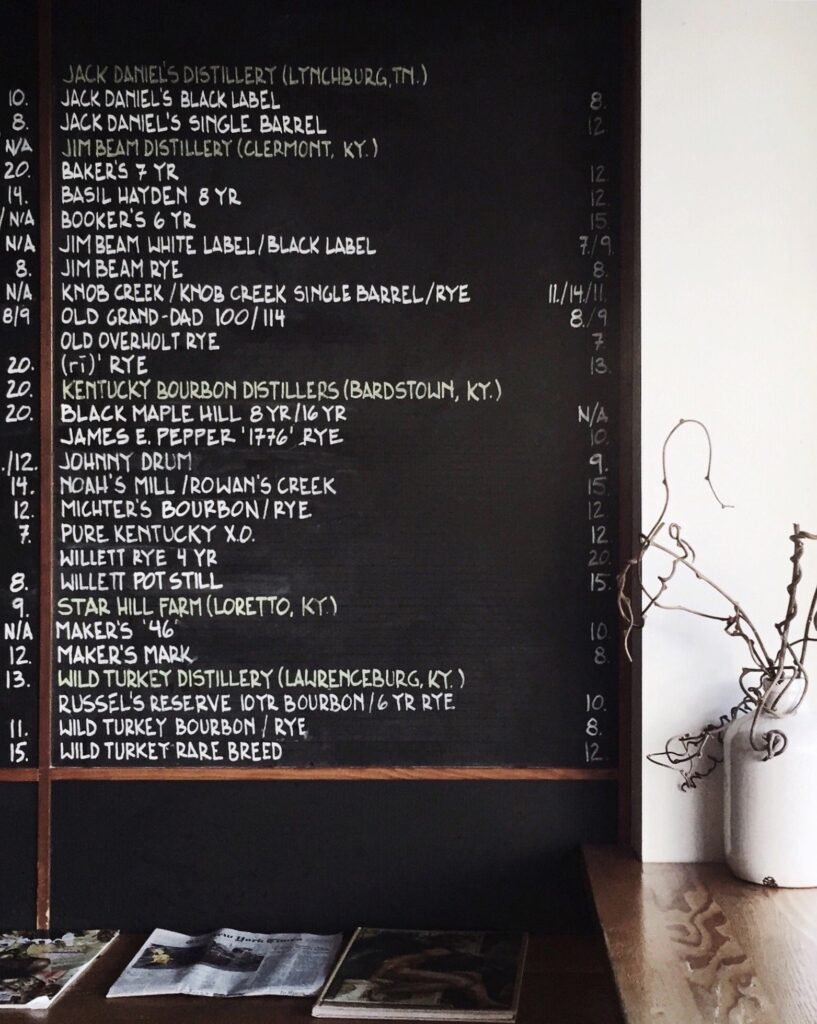 10.
8.
N/A
20.
14.
/N/A
N/A
8.
N/A
8/9
20.
20.
20.
./12.
14.
12.
7.
8.
9.
N/A
12.
13.
11.
15.
JACK DANIEL'S DISTILLERY (LYNCHBURG, TN.)
JACK DANIEL'S BLACK LABEL 8.
JACK DANIEL'S SINGLE BARREL 12
JIM BEAM DISTILLERY (CLERMONT, KY.)
BAKER'S 7 YR 12.
BASIL HAYDEN 8 YR 12.
BOOKER'S 6 YR 15.
JIM BEAM WHITE LABEL/BLACK LABEL 7/9.
JIM BEAM RYE 8.
KNOB CREEK/KNOB CREEK SINGLE BARREL/RYE 11./14/11.
OLD GRAND-DAD 100/114 8./9
OLD OVERHOLT RYE 7
(rī)' RYE 13.
KENTUCKY BOURBON DISTILLERS (BARDSTOWN, KY.)
BLACK MAPLE HILL 8 YR/16 YR N/A
JAMES E. PEPPER '1776' RYE 10.
JOHNNY DRUM 9.
NOAH'S MILL/ROWAN'S CREEK 15.
MICHTER'S BOURBON/RYE 12
PURE KENTUCKY X.O. 12
WILLETT RYE 4 YR 20.
WILLETT POT STILL 15.
STAR HILL FARM (LORETTO, KY.)
MAKER'S '46' 10.
MAKER'S MARK 8.
WILD TURKEY DISTILLERY (LAWRENCEBURG, KY.)
RUSSEL'S RESERVE 10YR BOURBON/6 YR RYE 10.
WILD TURKEY BOURBON / RYE 8.
WILD TURKEY RARE BREED 12.
York Times